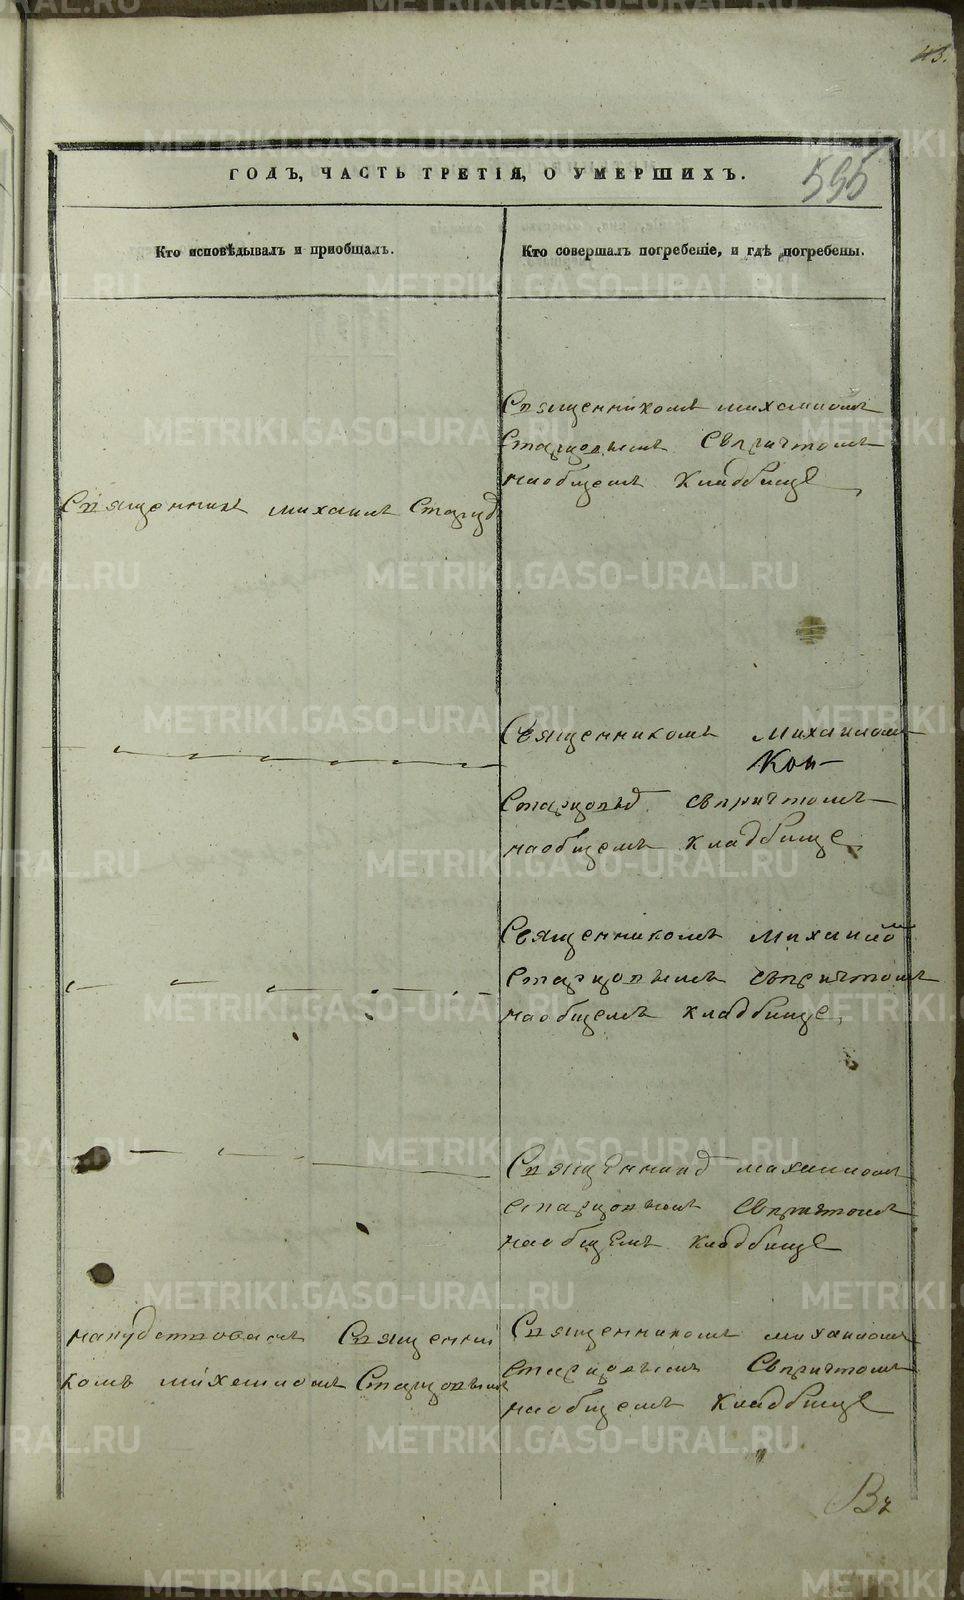 43.
595
ГОДЪ, ЧАСТЬ ТРЕТІЯ, О УМЕРШИХЪ.
Кто исповѣдывалъ и приобщалъ.
Кто совершалъ погребеніе, и гдѣ погребены.
Священникомъ михаиломъ
Старцовымъ Съпричтомъ
наобщемъ Кладбище
Священникъ михаилъ Старц
Священникомъ Михаиломъ
Старцовы съпричтомъ
наобщемъ кладбище
Священникомъ Михаило
Старцовымъ съпричтомъ
наобщемъ кладбище,
михаиломъ
старцовымъ Съпричтомъ
наобщемъ кладбище
напутствованъ Священни
комъ михаиломъ Старцовымъ
Священникомъ михаиломъ
старцовымъ Съпричтомъ
наобщемъ Кладбище
METRIKI.GASO-URAL.RU